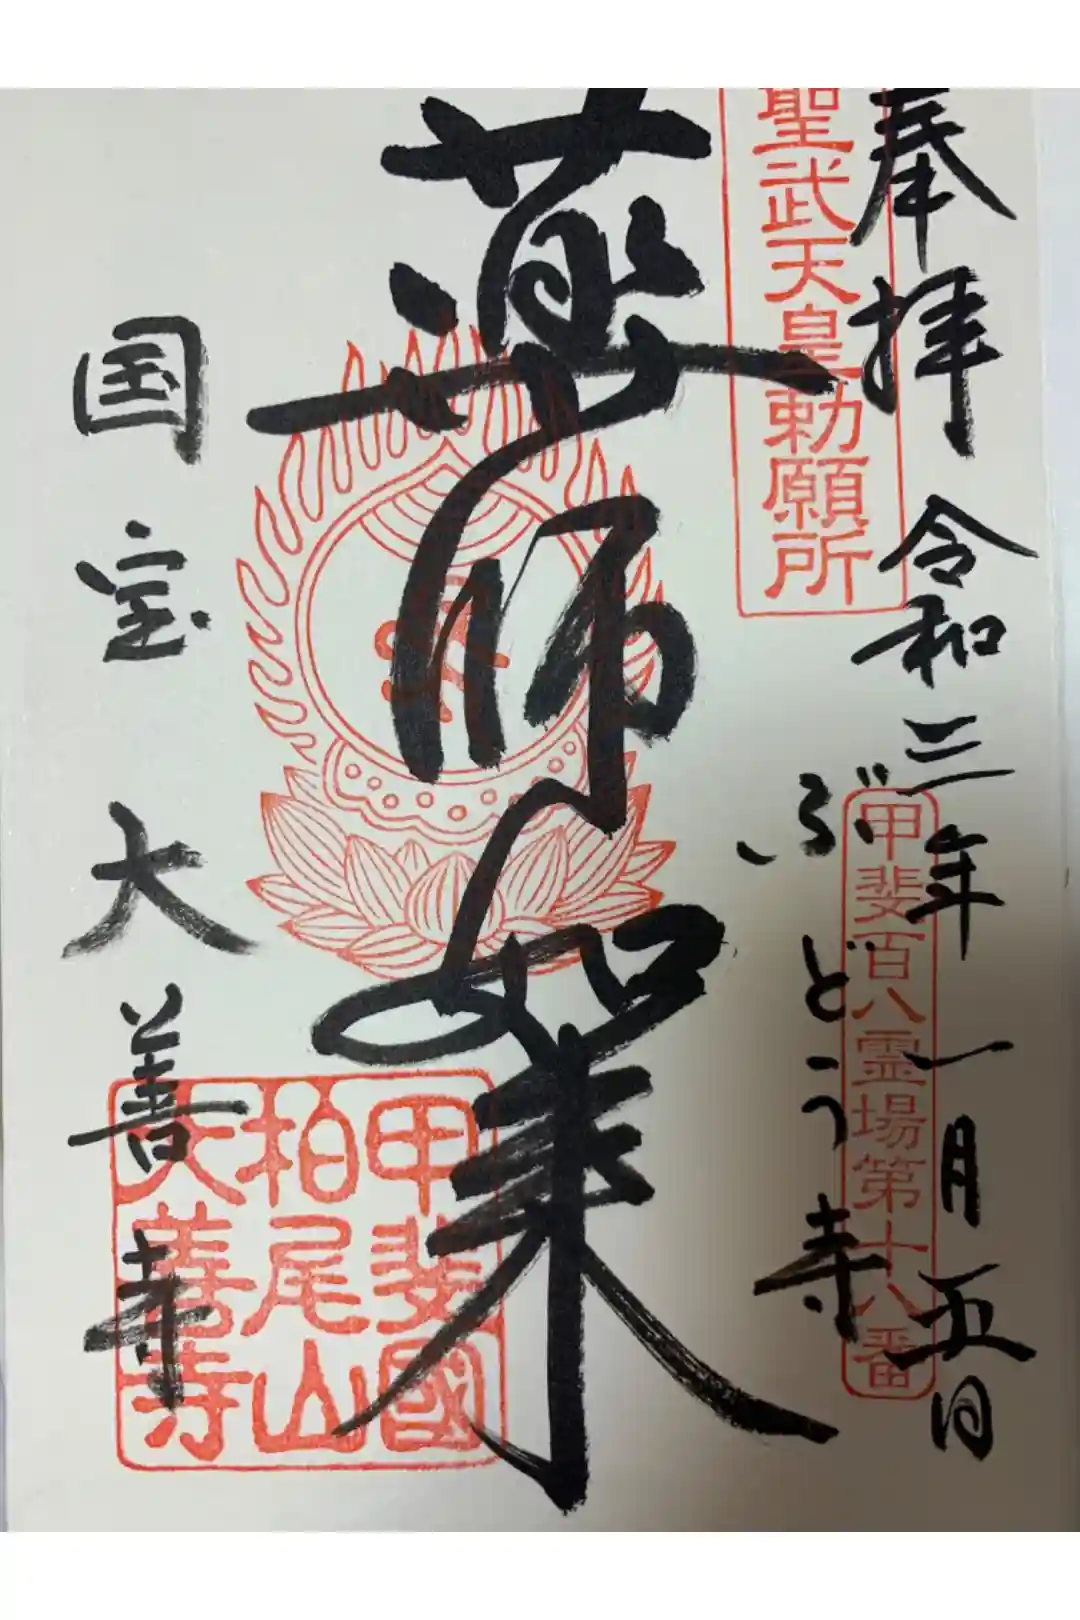 奉拝 令和三年一月五日
聖武天皇勅願所
甲斐百八霊場第十八番
ぶどう寺
薬師如来
国宝 大善寺
甲斐國
柏尾山
大善寺